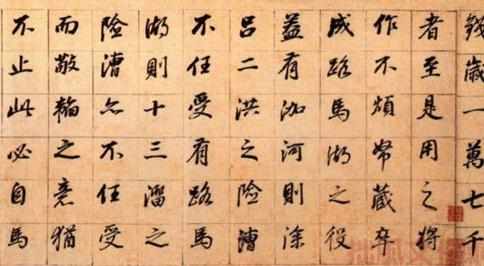 錢歲一萬七千
者至是用之將
作不煩帑藏卒
成路馬湖之役
益有泇河則徐
呂二洪之險漕
不任受有路馬
湖則十三溜之
險漕亦不任受
而敬輪之意猶
不止此必自馬